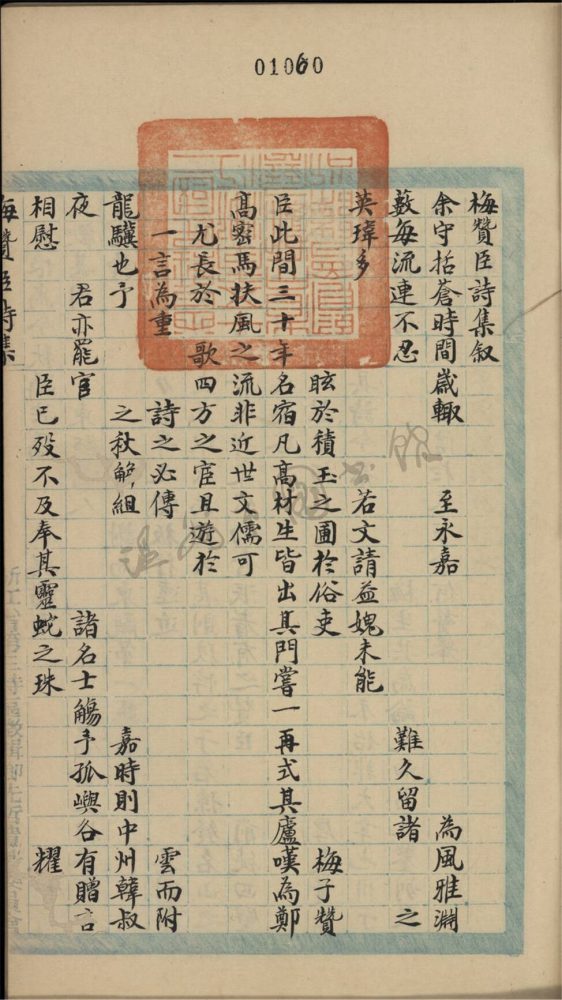 01060
梅贊臣詩集敘
余守括蒼時間嵗輙 至永嘉 為風雅淵
藪每流連不忍 難久留諸 之
英瑋多 若文請益媿未能
眩於積玉之圃於俗吏 梅子贊
臣此間三十年名宿凡高材生皆出其門嘗一再式其廬嘆為鄭
高密馬扶風之流非近世文儒可
尤長於 歌四方之宦且遊於
一言為重 詩之必傳 雲而附
龍驥也予 之秋解組 嘉時則中州韓叔
夜 君亦罷官 諸名士觴予孤嶼各有贈言
相慰 臣已歿不及奉其靈蛇之珠 耀
梅贊臣詩集